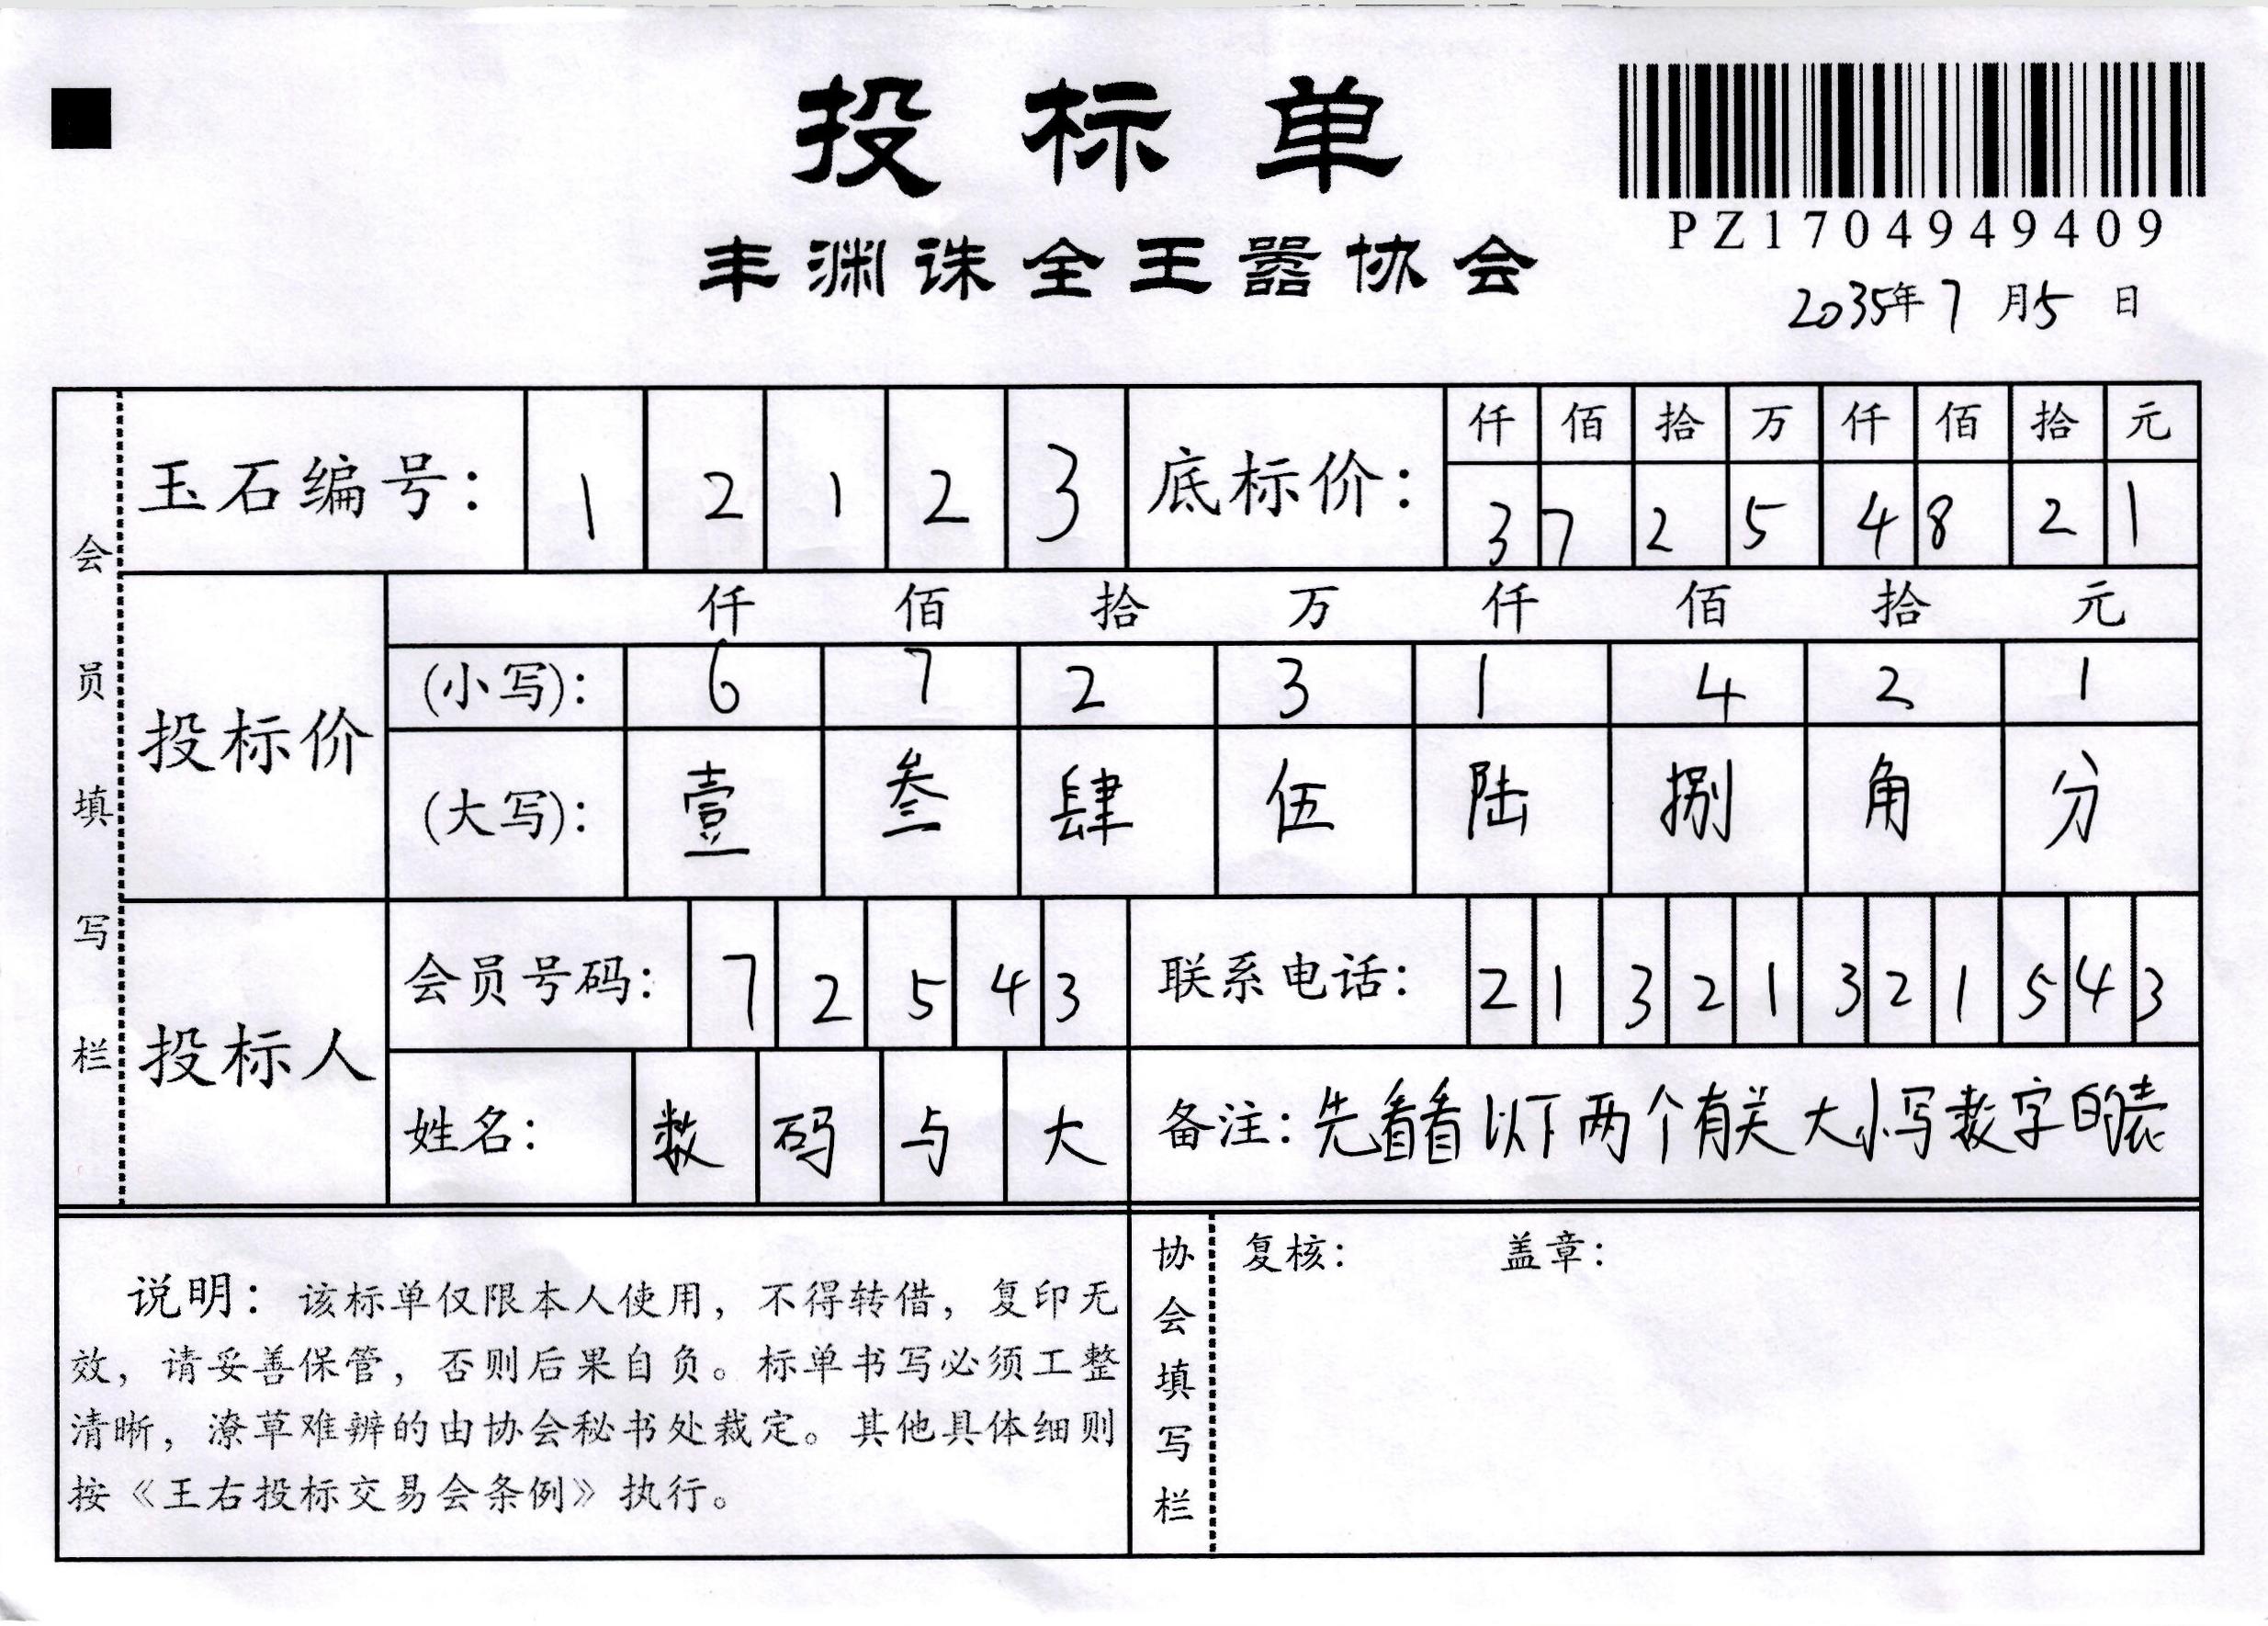 投标单
丰渊诛全王嚣协会
PZ1704949409
2035年7月5日
会员填写栏
玉石编号: 1 2 1 2 3
底标价: 仟 佰 拾 万 仟 佰 拾 元
3 7 2 5 4 8 2 1
投标价
仟 佰 拾 万 仟 佰 拾 元
(小写): 6 7 2 3 1 4 2 1
(大写): 壹 叁 肆 伍 陆 捌 角 分
投标人
会员号码: 7 2 5 4 3
联系电话: 2 1 3 2 1 3 2 1 5 4 3
姓名: 数 码 与 大
备注: 先看看以下两个有关大小写数字的表
说明: 该标单仅限本人使用，不得转借，复印无
效，请妥善保管，否则后果自负。标单书写必须工整
清晰，潦草难辨的由协会秘书处裁定。其他具体细则
按《王右投标交易会条例》执行。
协会填写栏
复核: 盖章: